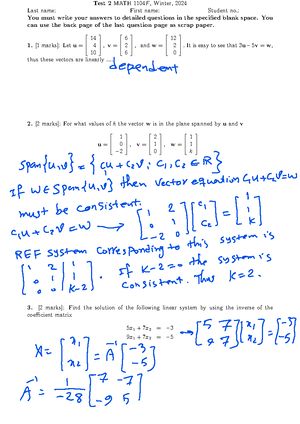 Test 2 MATH 1104F, Winter, 2024
Last name: First name: Student no.:
You must write your answers to detailed questions in the specified blank space. You
can use the back page of the last question page as scrap paper.
1. [1 marks] Let u = [14 4 10], v = [6 2 6], and w = [12 2 0]. It is easy to see that 3u − 5v = w,
thus these vectors are linearly ... dependent
2. [2 marks]. For what values of k the vector w is in the plane spanned by u and v
u = [1 0 -2], v = [2 1 0], w = [1 1 k]
Span{u,v} = { c₁u + c₂v : c₁, c₂ ∈ R }
If w ∈ Span{u,v} then vector equation c₁u + c₂v = w
must be consistent.
c₁u + c₂v = w → [1 2 0 1 -2 0] [c₁ c₂] = [1 1 k]
REF system corresponding to this system is
[1 2 | 1 0 1 | 1 0 0 | k-2]. If k-2=0 the system is
consistent. Thus k=2.
3. [2 marks]. Find the solution of the following linear system by using the inverse of the
coefficient matrix
5x₁ + 7x₂ = −3
9x₁ + 7x₂ = −5
→ [5 7 9 7] [x₁ x₂] = [-3 -5]
X = [x₁ x₂] = A⁻¹ [-3 -5]
A⁻¹ = 1/-28 [7 -7 -9 5]